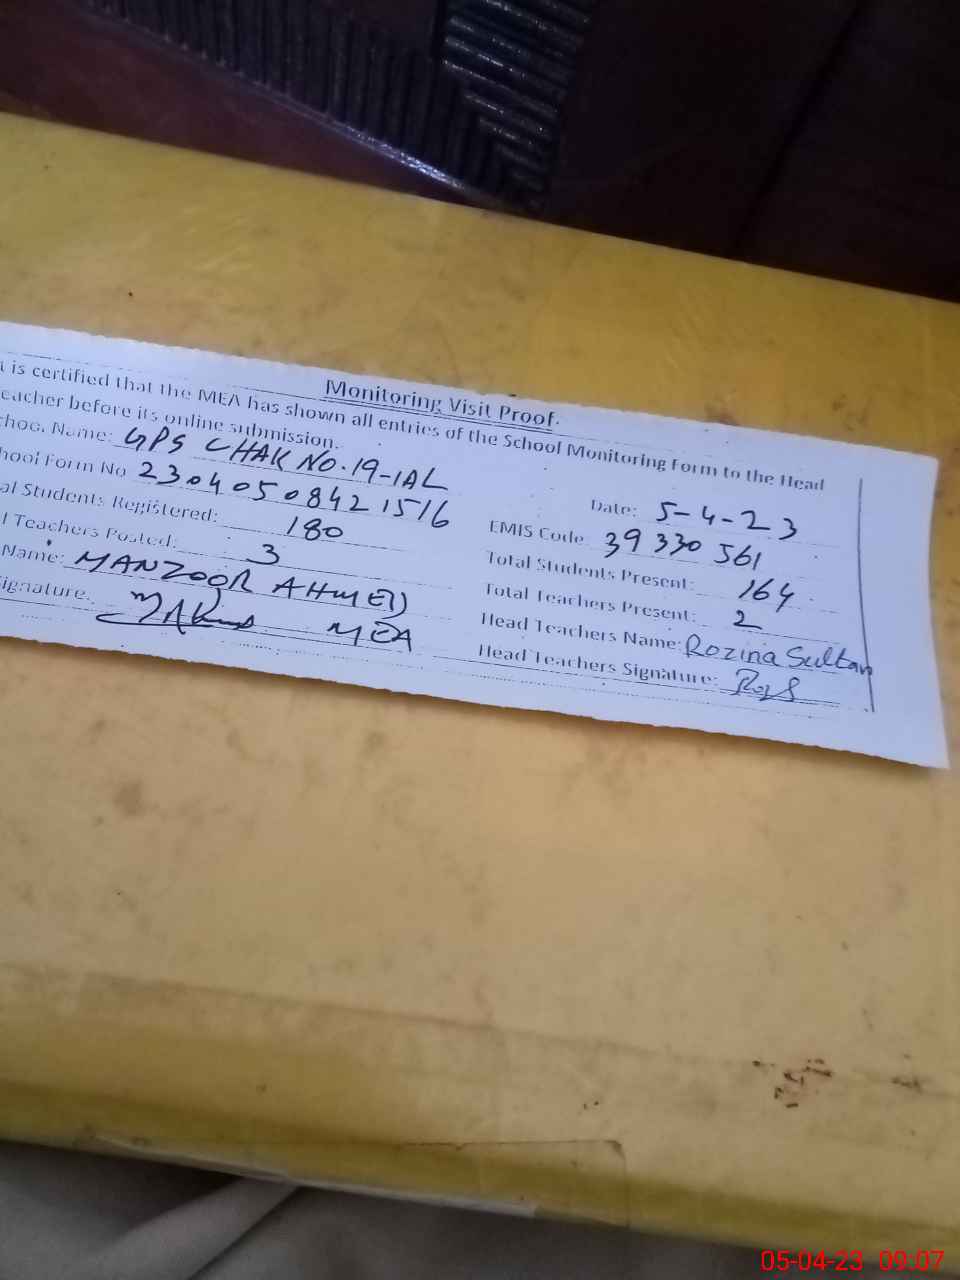 Monitoring Visit Proof.
is certified that the MEA has shown all entries of the School Monitoring Form to the Head
eacher before its online submission.
Date: 5-4-23
chool Name: GPS CHAK NO.19-1AL
EMIS Code 39330561
hool Form No 23040508421516
Total Students Present: 164
al Students Registered: 180
Total Teachers Present: 2
l Teachers Posted: 3
Head Teachers Name: Rozina Sultan
Name: MANZOOR AHMED
Head Teachers Signature:
ignature. MEA
05-04-23 09:07